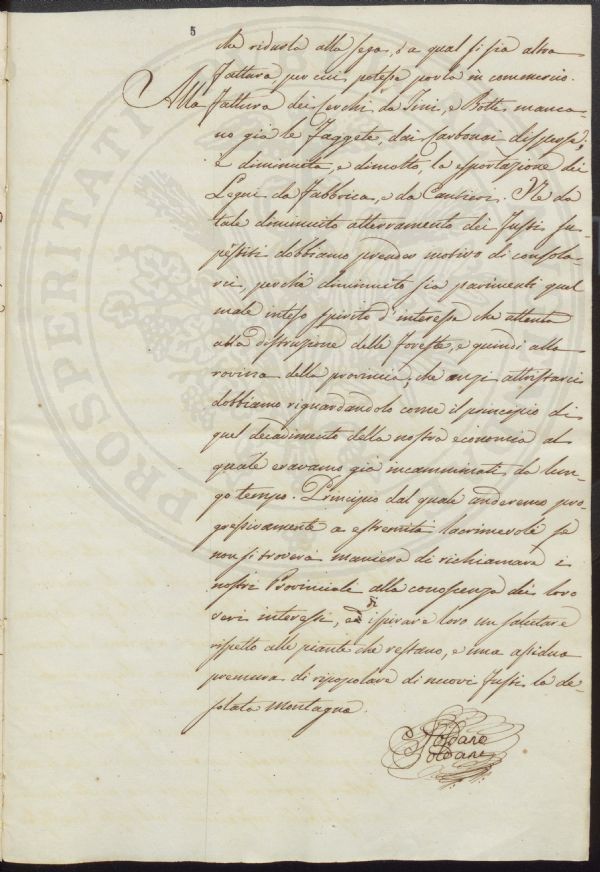 5
che ridurla alla sega, o a qual si sia altra
fattura per cui potesse porla in commercio.
Alla fattura dei Cerchi da Tini, e Botti manca-
no già le Faggete, dai Carbonai disperse,
è diminuita, e di molto, la esportazione dei
Legni da Fabbrica, e da Cantieri. Ne da
tale diminuito atterramento dei Fusti su-
perstiti dobbiamo prender motivo di consola-
rci, perchè diminuito sia parimenti quel
male inteso spirito d'interesse che attenta
alla distruzione delle foreste, e quindi alla
rovina della provincia, che anzi attristarci
dobbiamo riguardandolo come il principio di
quel decadimento della nostra economia al
quale eravamo già incamminati da lun-
go tempo. Principio dal quale anderemo pro-
gressivamente a estremità lacrimevole se
non si troverà maniera di richiamare i
nostri Provinciali alla conoscenza dei loro
veri interessi, ed di ispirare loro un salutare
rispetto alle piante che restano, e una assidua
premura di ripopolare di nuovi Fusti la de-
solata montagna.
Soldane
Soldani
PROSPERITATI